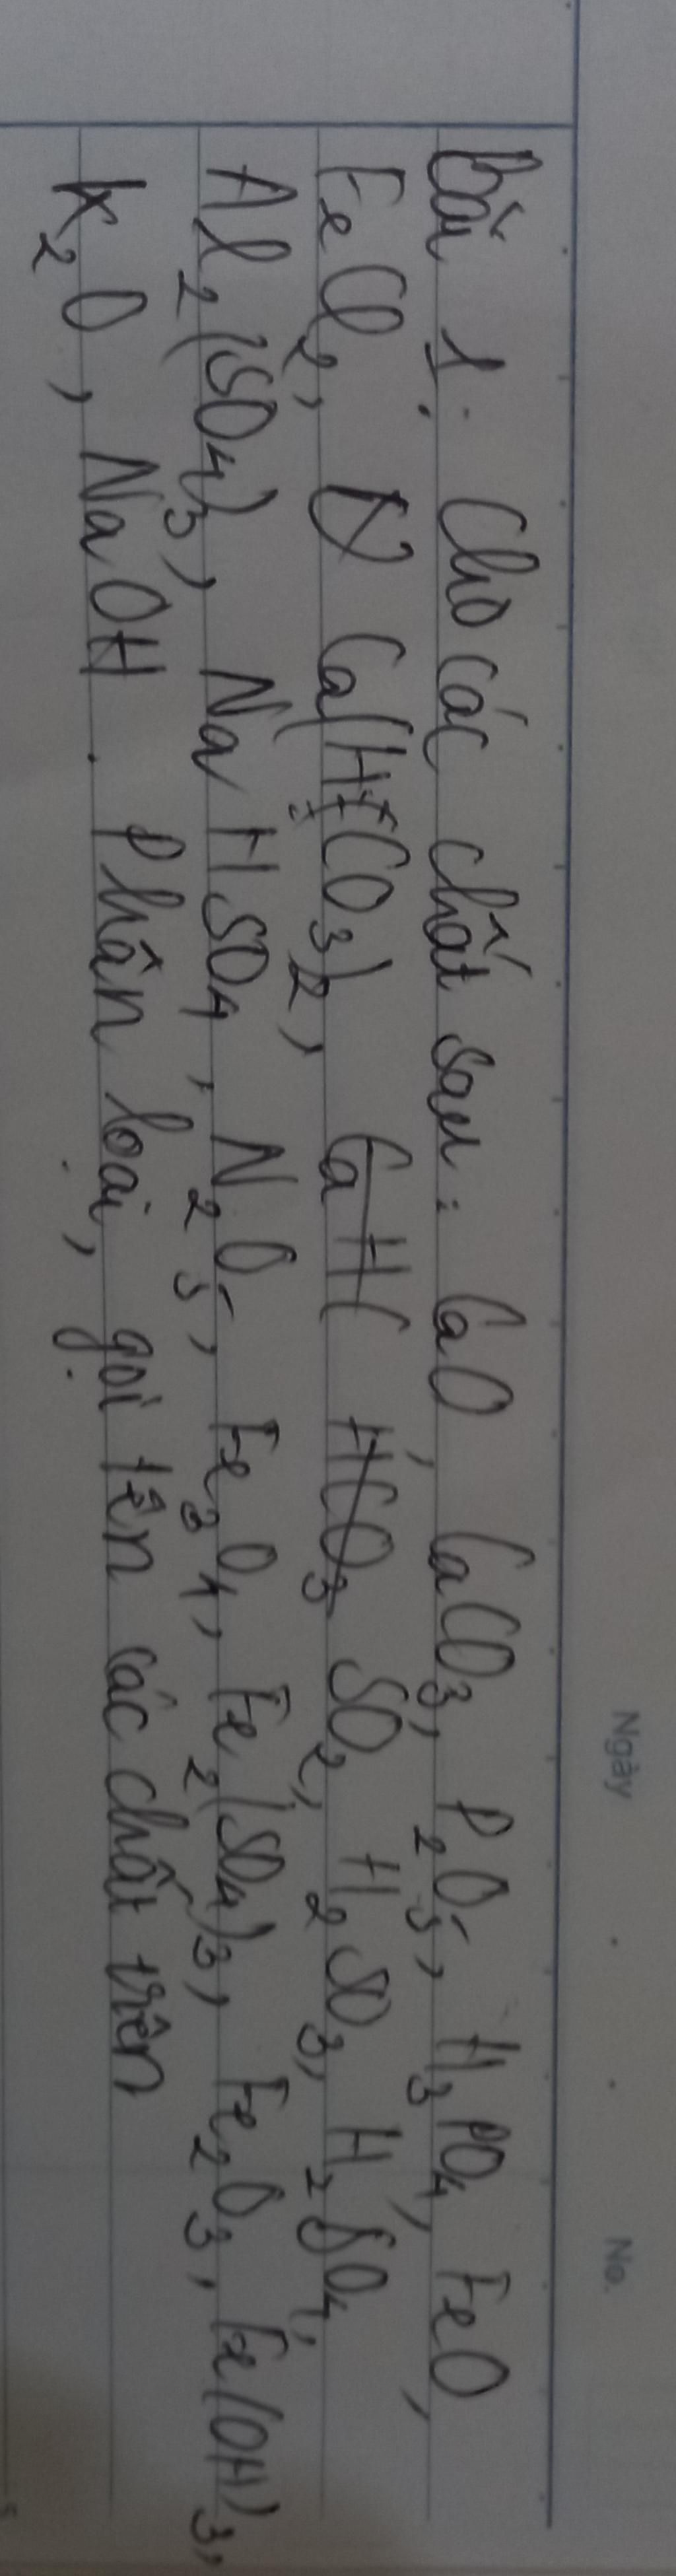 Ngày No.
Bài 1: Cho các chất sau: CaO, CaCO3, P2O5, H3PO4, FeO,
FeCl2, Ca(HCO3)2, SO2, H2SO3, H2SO4,
Al2(SO4)3, NaHSO4, N2O5, Fe3O4, Fe2(SO4)3, Fe2O3, Fe(OH)3,
K2O, NaOH. Phân loại, gọi tên các chất trên